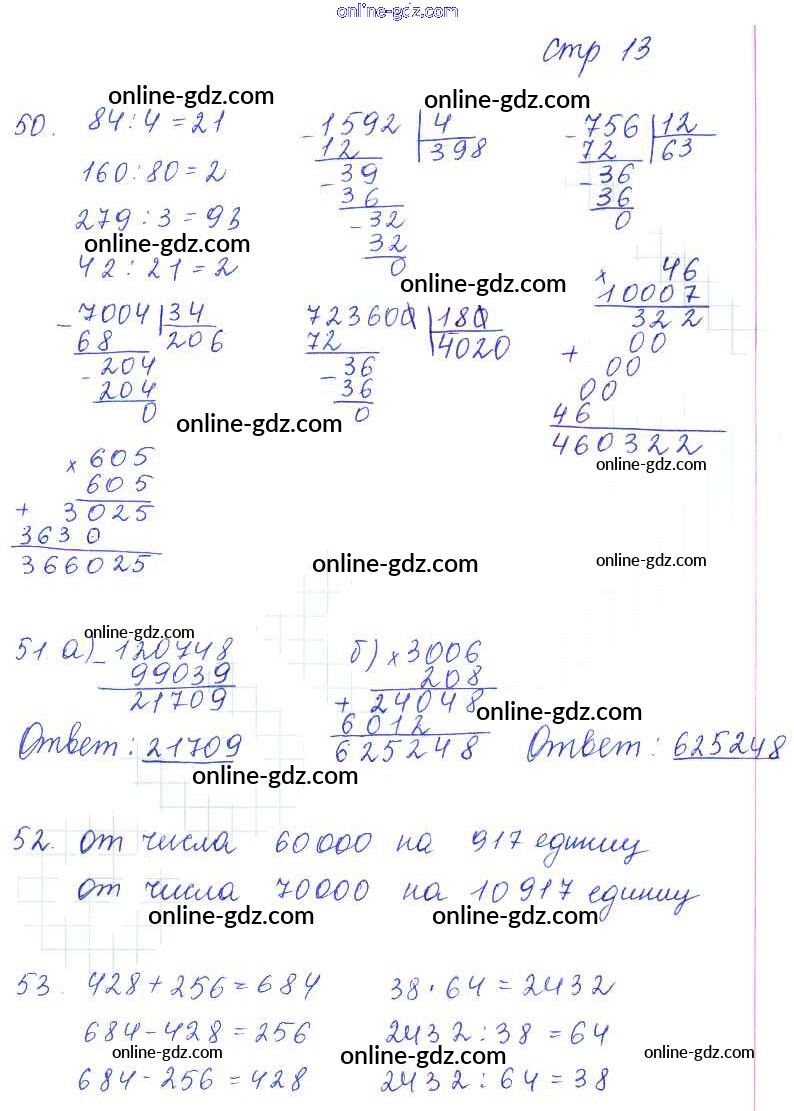 online-gdz.com
стр 13
online-gdz.com
online-gdz.com
50. 84:4=21
160:80=2
279:3=93
online-gdz.com
42:21=2
-1592 | 4
12 398
-39
36
-32
32
0
-756 | 12
72 63
-36
36
0
online-gdz.com
-7004 | 34
68 206
-204
204
0
723600 | 180
72 4020
-36
36
0
online-gdz.com
× 46
10007
322
+ 00
00
00
46
460322
online-gdz.com
× 605
605
+ 3025
3630
366025
online-gdz.com
online-gdz.com
online-gdz.com
51 а) -120748
99039
21709
Ответ: 21709
online-gdz.com
б) ×3006
208
+ 24048
6012
625248
online-gdz.com
Ответ: 625248
52. от числа 60000 на 917 единиц
от числа 70000 на 10917 единиц
online-gdz.com
online-gdz.com
53. 428+256=684
684-428=256
online-gdz.com
684-256=428
38·64=2432
2432:38=64
online-gdz.com
online-gdz.com
2432:64=38